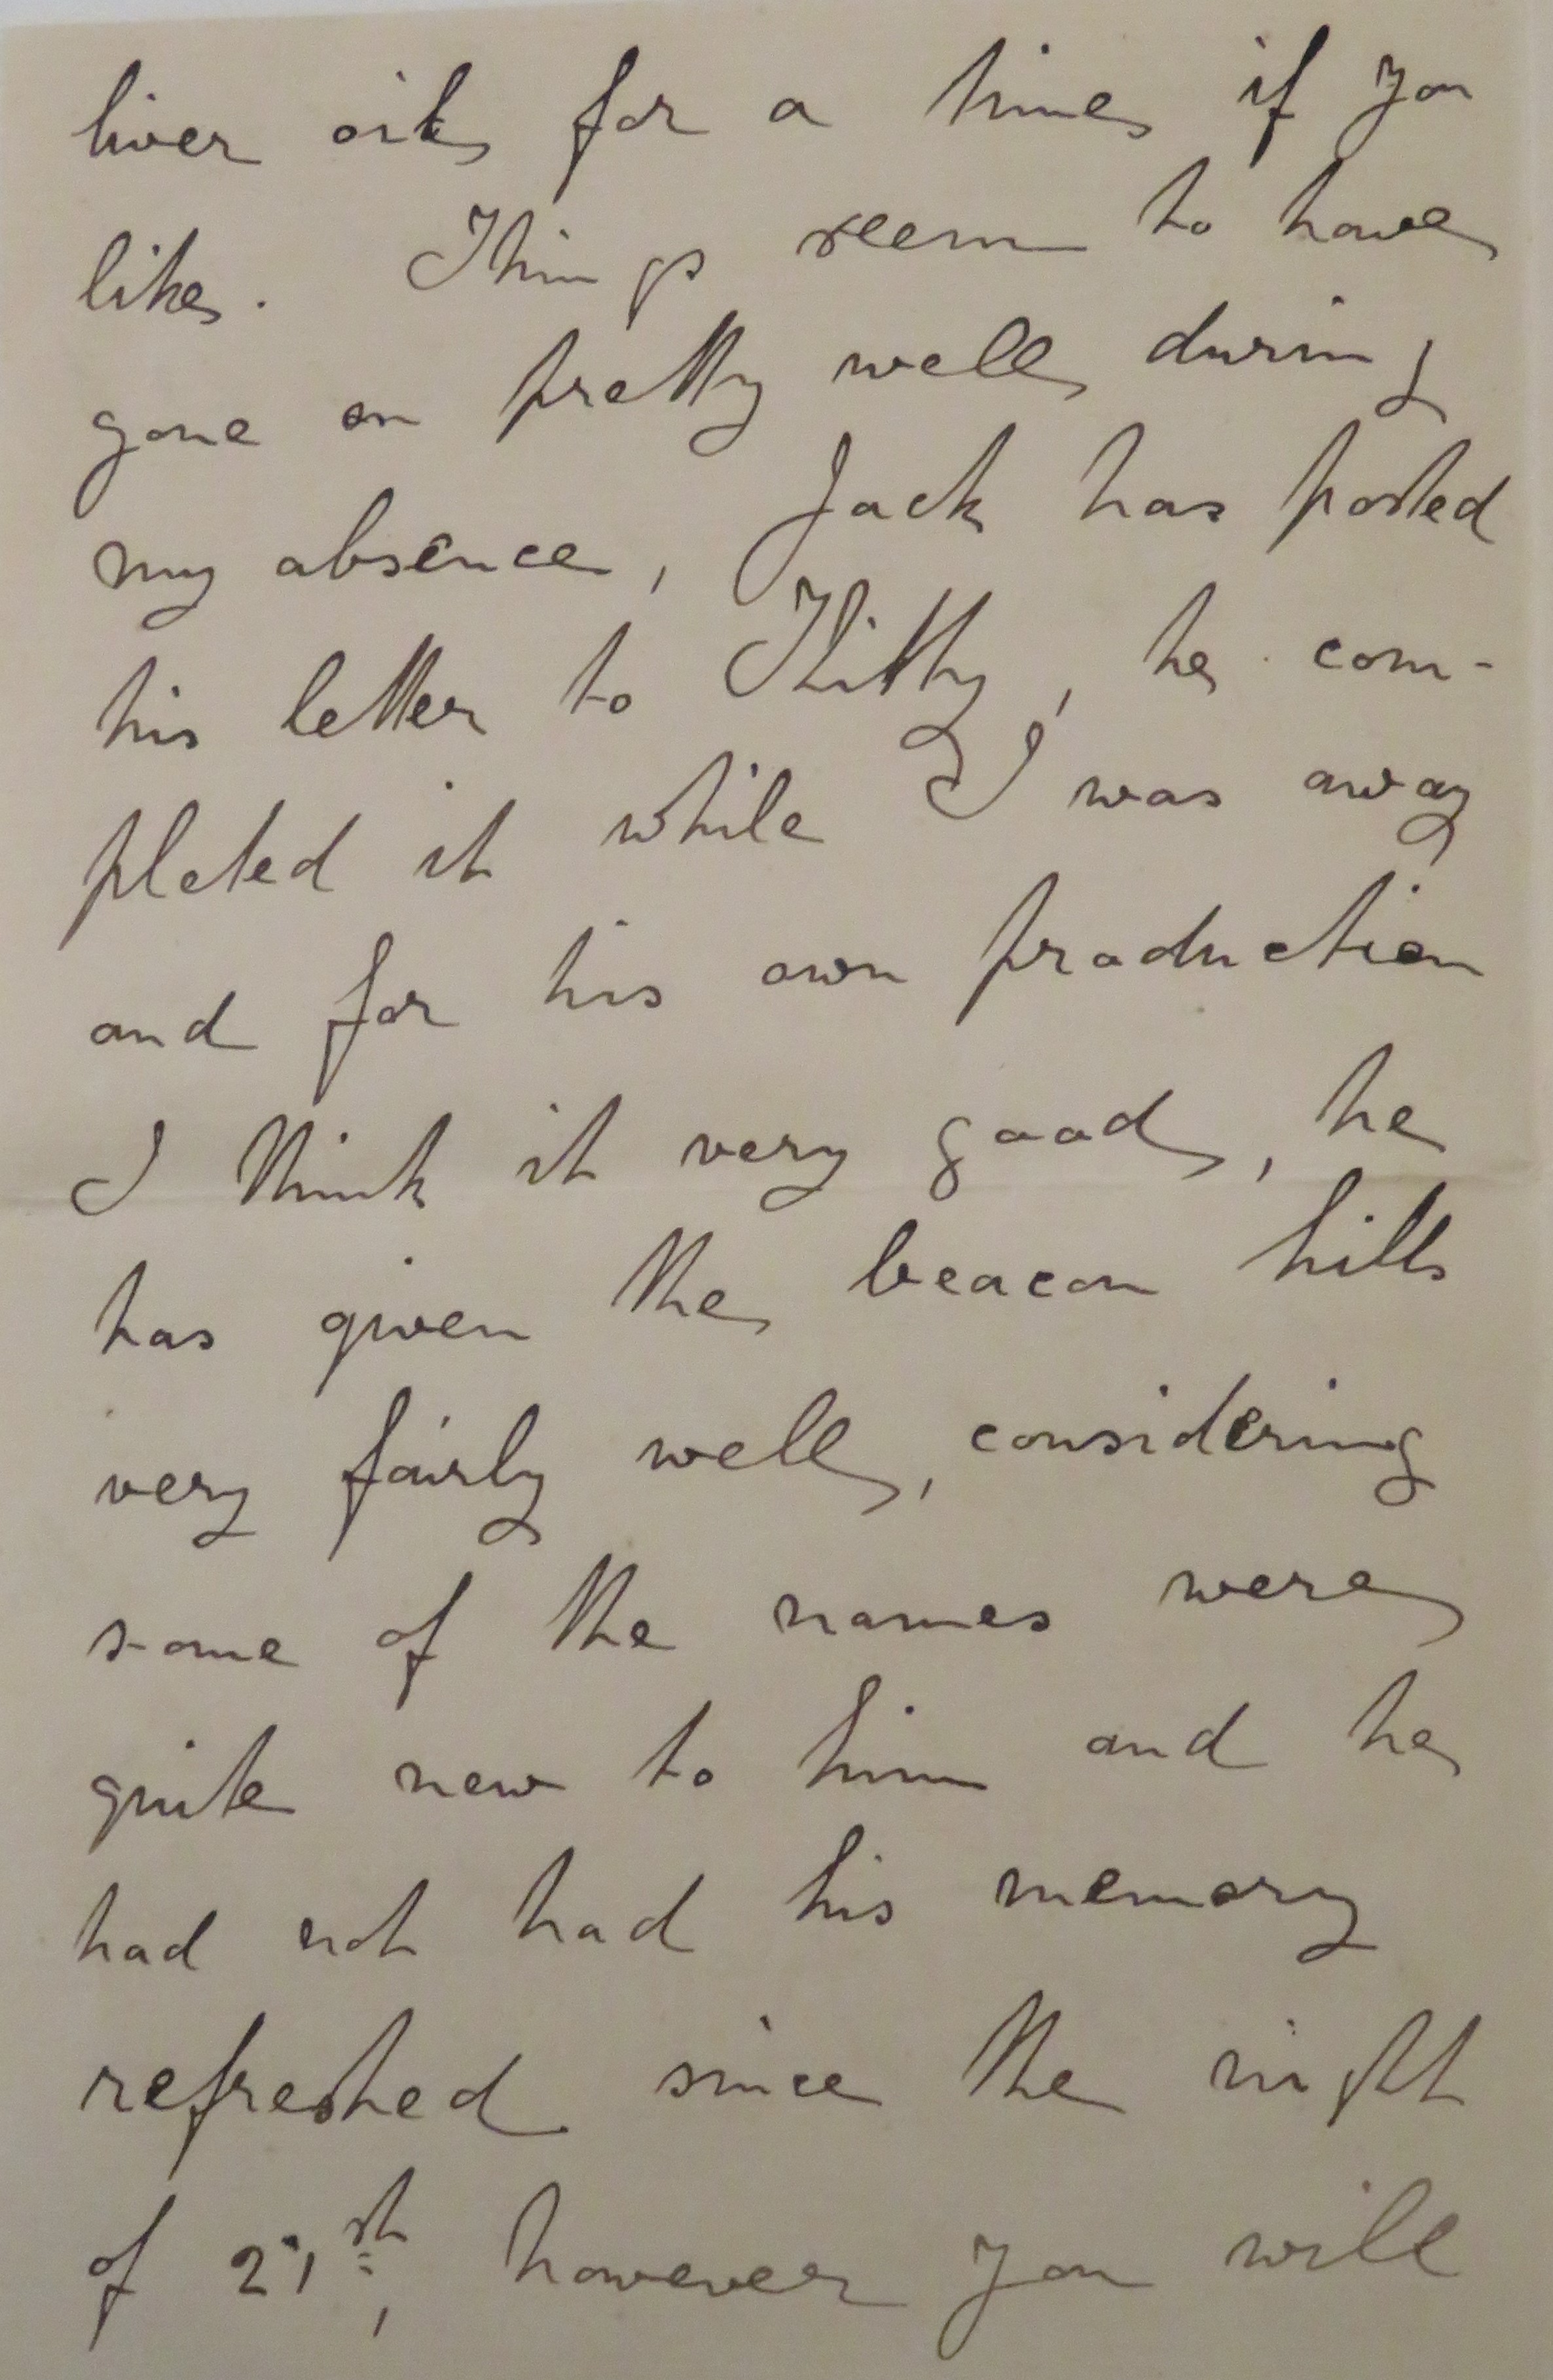 liver oil for a time if you
like. Things seem to have
gone on pretty well during
my absence, Jack has posted
his letter to Kitty, he com-
pleted it while I was away
and for his own production
I think it very good, he
has given the beacon hills
very fairly well, considering
some of the names were
quite new to him and he
had not had his memory
refreshed since the night
of 21st, however you will